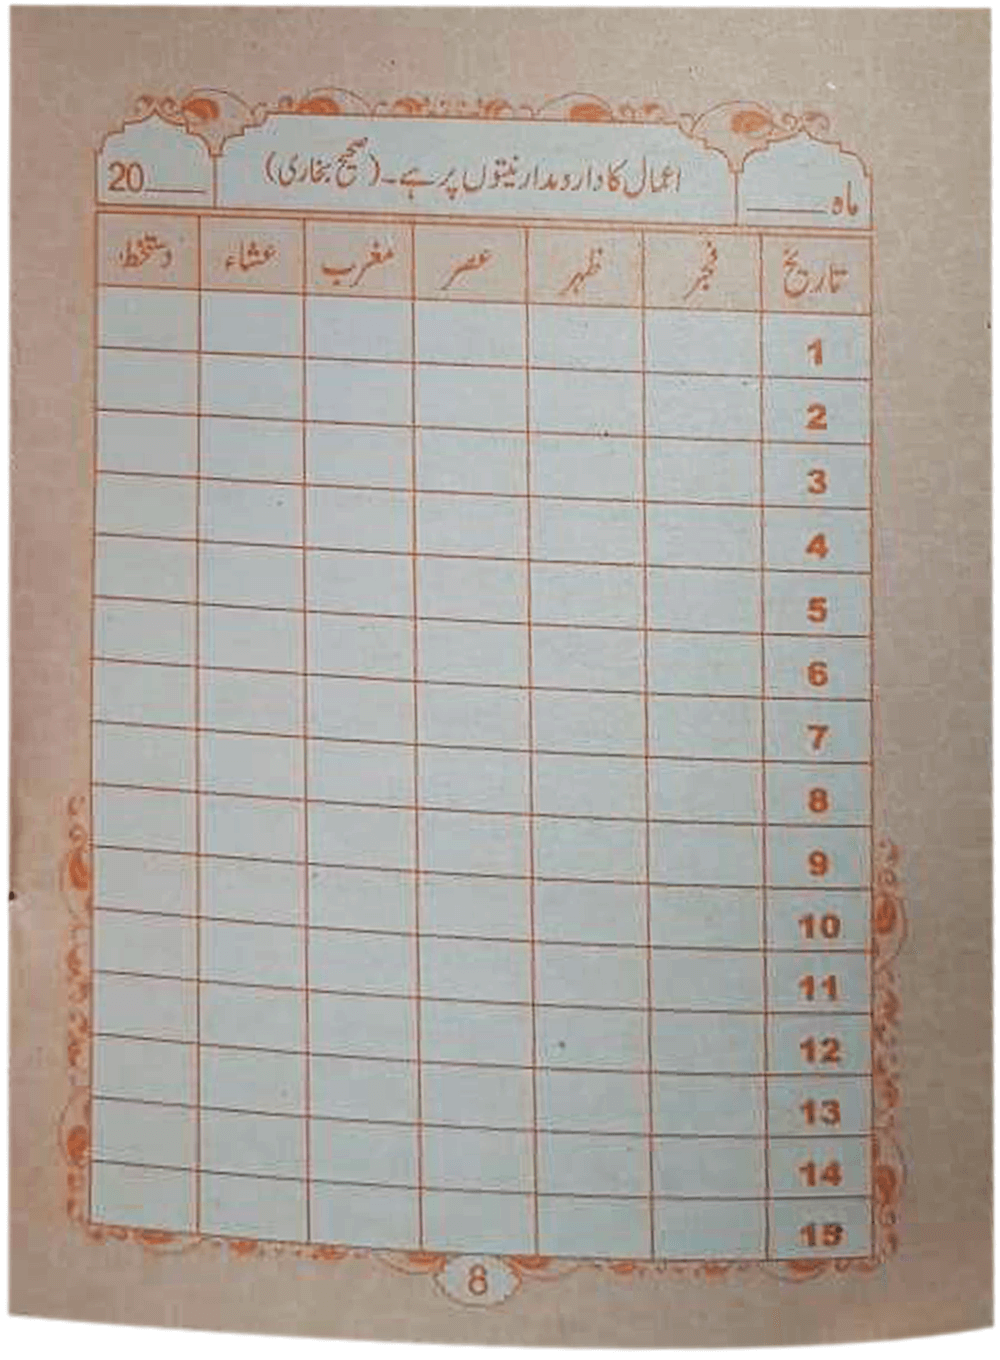 ماہ ____ اعمال کا دارومدار نیتوں پر ہے۔ (صحیح بخاری) 20____
تاریخ فجر ظہر عصر مغرب عشاء دستخط
1
2
3
4
5
6
7
8
9
10
11
12
13
14
15
8